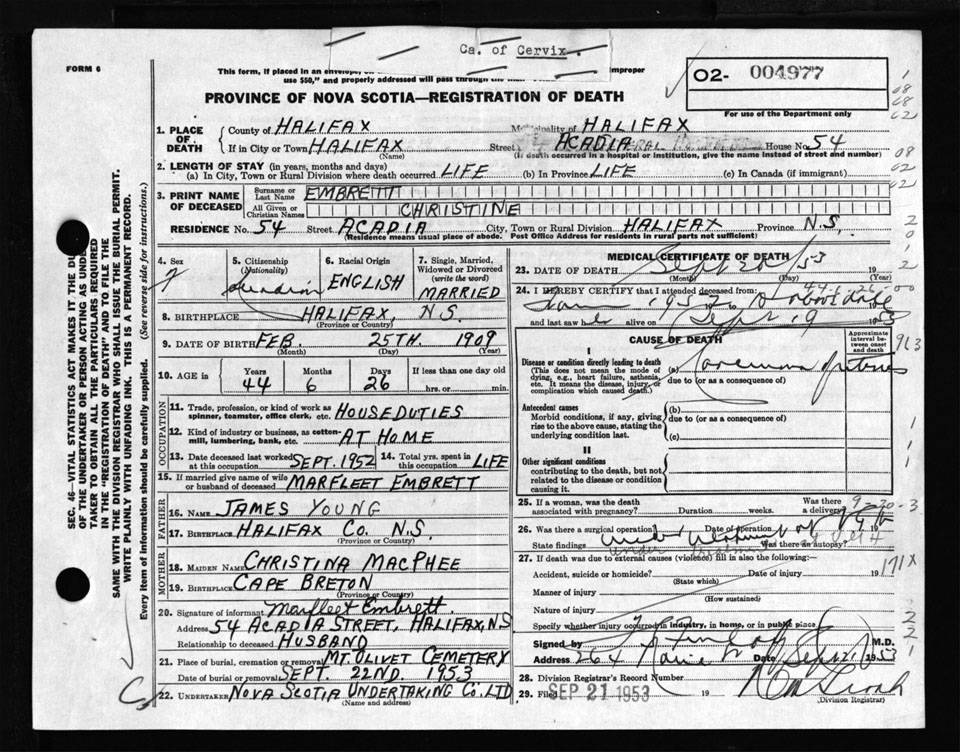 Ca. of Cervix.
FORM 6
This form, if placed in an envelope, improper
use $50," and properly addressed will pass through the
02- 004977
For use of the Department only
PROVINCE OF NOVA SCOTIA—REGISTRATION OF DEATH
1. PLACE OF DEATH County of HALIFAX Municipality of HALIFAX
If in City or Town HALIFAX Street ACADIA House No. 54
(Name) (If death occurred in a hospital or institution, give the name instead of street and number)
2. LENGTH OF STAY (in years, months and days)
(a) In City, Town or Rural Division where death occurred LIFE (b) In Province LIFE (c) In Canada (if immigrant)
3. PRINT NAME OF DECEASED Surname or Last Name EMBRETT
All Given or Christian Names CHRISTINE
RESIDENCE No. 54 Street ACADIA City, Town or Rural Division HALIFAX Province N.S.
(Residence means usual place of abode. Post Office Address for residents in rural parts not sufficient)
4. Sex
5. Citizenship (Nationality)
6. Racial Origin ENGLISH
7. Single, Married, Widowed or Divorced (write the word) MARRIED
8. BIRTHPLACE HALIFAX, N.S.
(Province or Country)
9. DATE OF BIRTH FEB. 25TH. 1909
(Month) (Day) (Year)
10. AGE in Years 44 Months 6 Days 26 If less than one day old hrs. or min.
OCCUPATION
11. Trade, profession, or kind of work as spinner, teamster, office clerk, etc. HOUSEDUTIES
12. Kind of industry or business, as cotton-mill, lumbering, bank, etc. AT HOME
13. Date deceased last worked at this occupation SEPT. 1952 14. Total yrs. spent in this occupation LIFE
15. If married give name of wife or husband of deceased MARFLEET EMBRETT
FATHER
16. NAME JAMES YOUNG
17. BIRTHPLACE HALIFAX CO. N.S.
(Province or Country)
MOTHER
18. MAIDEN NAME CHRISTINA MACPHEE
19. BIRTHPLACE CAPE BRETON
(Province or Country)
20. Signature of informant Marfleet Embrett.
Address 54 ACADIA STREET, HALIFAX, N.S
Relationship to deceased HUSBAND
21. Place of burial, cremation or removal MT. OLIVET CEMETERY
Date of burial or removal SEPT. 22ND. 1953
22. UNDERTAKER NOVA SCOTIA UNDERTAKING CO. LTD
(Name and address)
MEDICAL CERTIFICATE OF DEATH
23. DATE OF DEATH Sept 20 /53 19
(Month) (Day) (Year)
44-6-26-00
24. I HEREBY CERTIFY that I attended deceased from:
and last saw h alive on Sept 19 1953
CAUSE OF DEATH
Approximate interval between onset and death
I
Disease or condition directly leading to death (a) Carcinoma of uterus
(This does not mean the mode of dying, e.g., heart failure, asthenia, etc. It means the disease, injury, or complication which caused death.) due to (or as a consequence of)
Antecedent causes (b)
Morbid conditions, if any, giving rise to the above cause, stating the underlying condition last. due to (or as a consequence of)
(c)
II
Other significant conditions
contributing to the death, but not related to the disease or condition causing it.
25. If a woman, was the death associated with pregnancy? Duration weeks. Was there a delivery?
9-20-3
26. Was there a surgical operation? Date of operation 19
State findings Was there an autopsy?
27. If death was due to external causes (violence) fill in also the following:—
Accident, suicide or homicide? Date of injury 19
(State which)
171X
Manner of injury
(How sustained)
Nature of injury
Specify whether injury occurred in industry, in home, or in public place
Signed by M.D.
Address 264 Date Sept 21 1953
28. Division Registrar's Record Number
29. Filed SEP 21 1953 19
(Division Registrar)
SEC. 46—VITAL STATISTICS ACT MAKES IT THE
OF THE UNDERTAKER OR PERSON ACTING AS
TAKER TO OBTAIN ALL THE PARTICULARS REQUIRED
IN THE "REGISTRATION OF DEATH" AND TO FILE THE
SAME WITH THE DIVISION REGISTRAR WHO SHALL ISSUE THE BURIAL PERMIT.
WRITE PLAINLY WITH UNFADING INK. THIS IS A PERMANENT RECORD.
Every item of information should be carefully supplied. (See reverse side for instructions.)